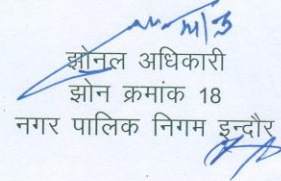 झोनल अधिकारी
झोन क्रमांक 18
नगर पालिक निगम इन्दौर